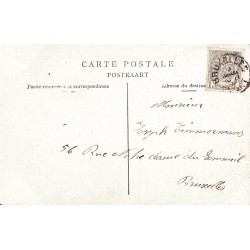 CARTE POSTALE
POSTKAART
Partie réservée à la correspondance
Adresse du destina
Monsieur
Joseph Timmermans
56 Rue Notre dame du Sommeil
Bruxelles